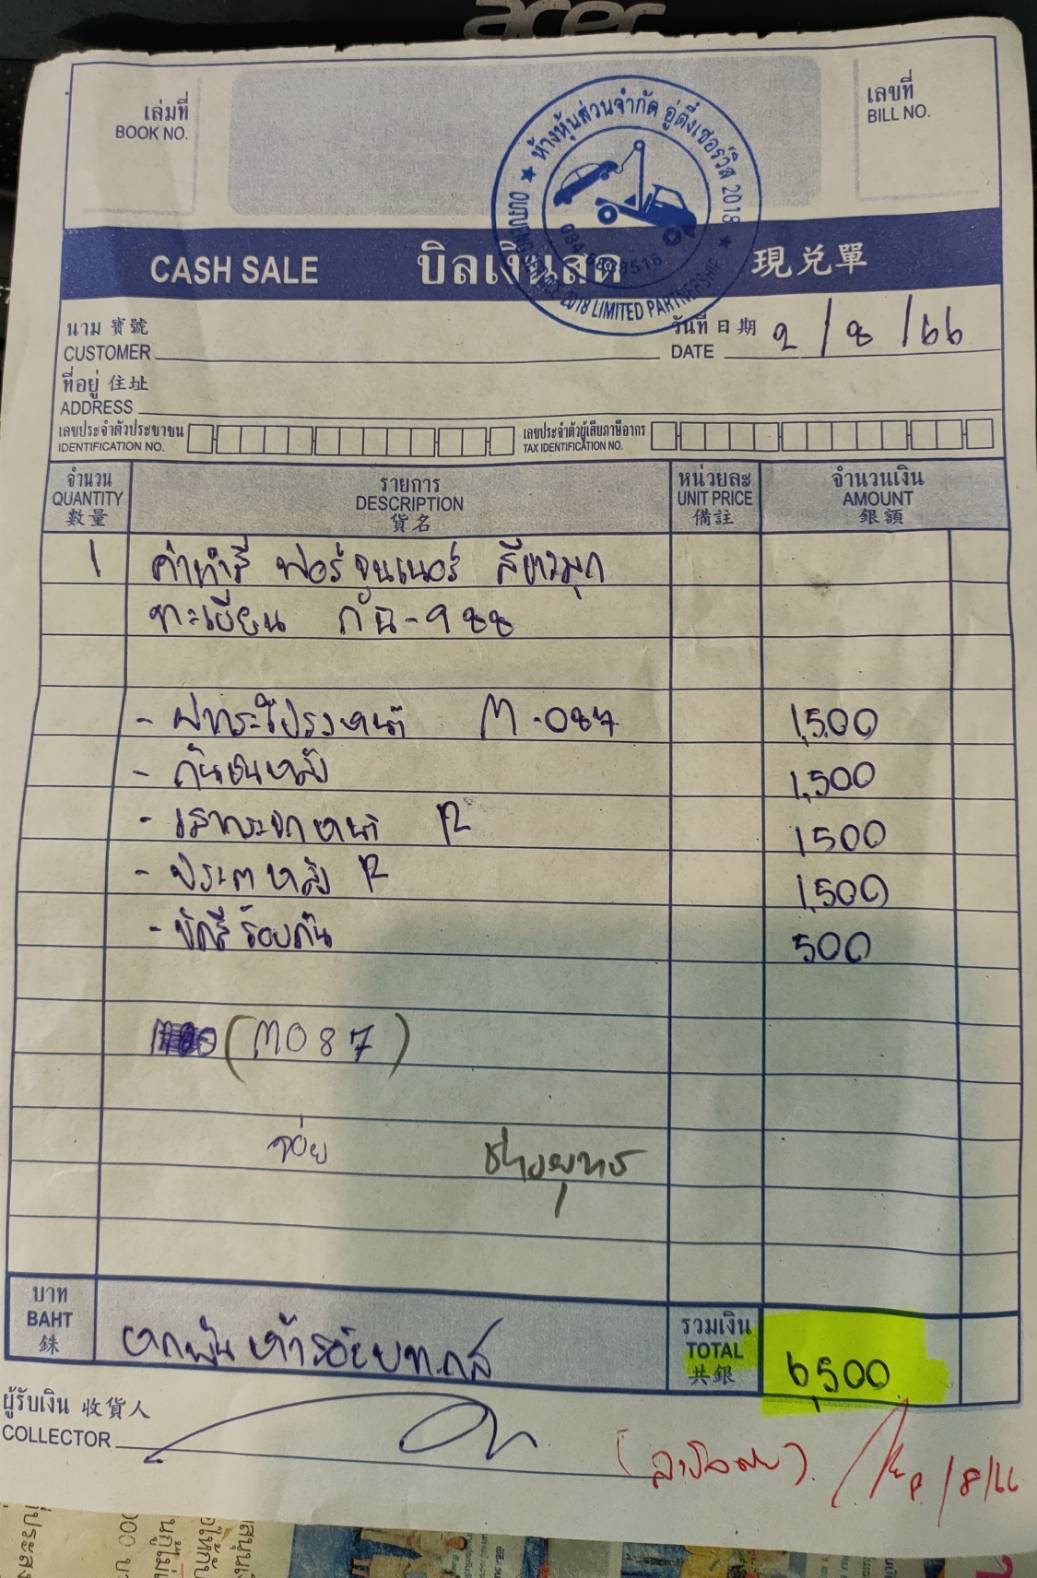 acer
เล่มที่
BOOK NO.
เลขที่
BILL NO.
ห้างหุ้นส่วนจำกัด อู่ตึ๋งเซอร์วิส 2018
2018 LIMITED PARTNERSHIP
CASH SALE บิลเงินสด 現兌單
นาม 寶號
CUSTOMER
วันที่ 日期
DATE 2/8/66
ที่อยู่ 住址
ADDRESS
เลขประจำตัวประชาชน
IDENTIFICATION NO.
เลขประจำตัวผู้เสียภาษีอากร
TAX IDENTIFICATION NO.
จำนวน
QUANTITY
數量
รายการ
DESCRIPTION
貨名
หน่วยละ
UNIT PRICE
備註
จำนวนเงิน
AMOUNT
銀額
1 ค่าทำสี ฟอร์จูนเนอร์ สีขาวมุก
ทะเบียน กน-988
- ฝากระโปรงหน้า M-087 1,500
- กันชนหลัง 1,500
- เสากระจกหน้า R 1500
- ประตูหลัง R 1,500
- ขัดสีรอบคัน 500
(M087)
จ่าย ช่างยุทธ
บาท
BAHT
銖
หกพันห้าร้อยบาท
รวมเงิน
TOTAL
共銀
6,500
ผู้รับเงิน 收貨人
COLLECTOR
8/8/66